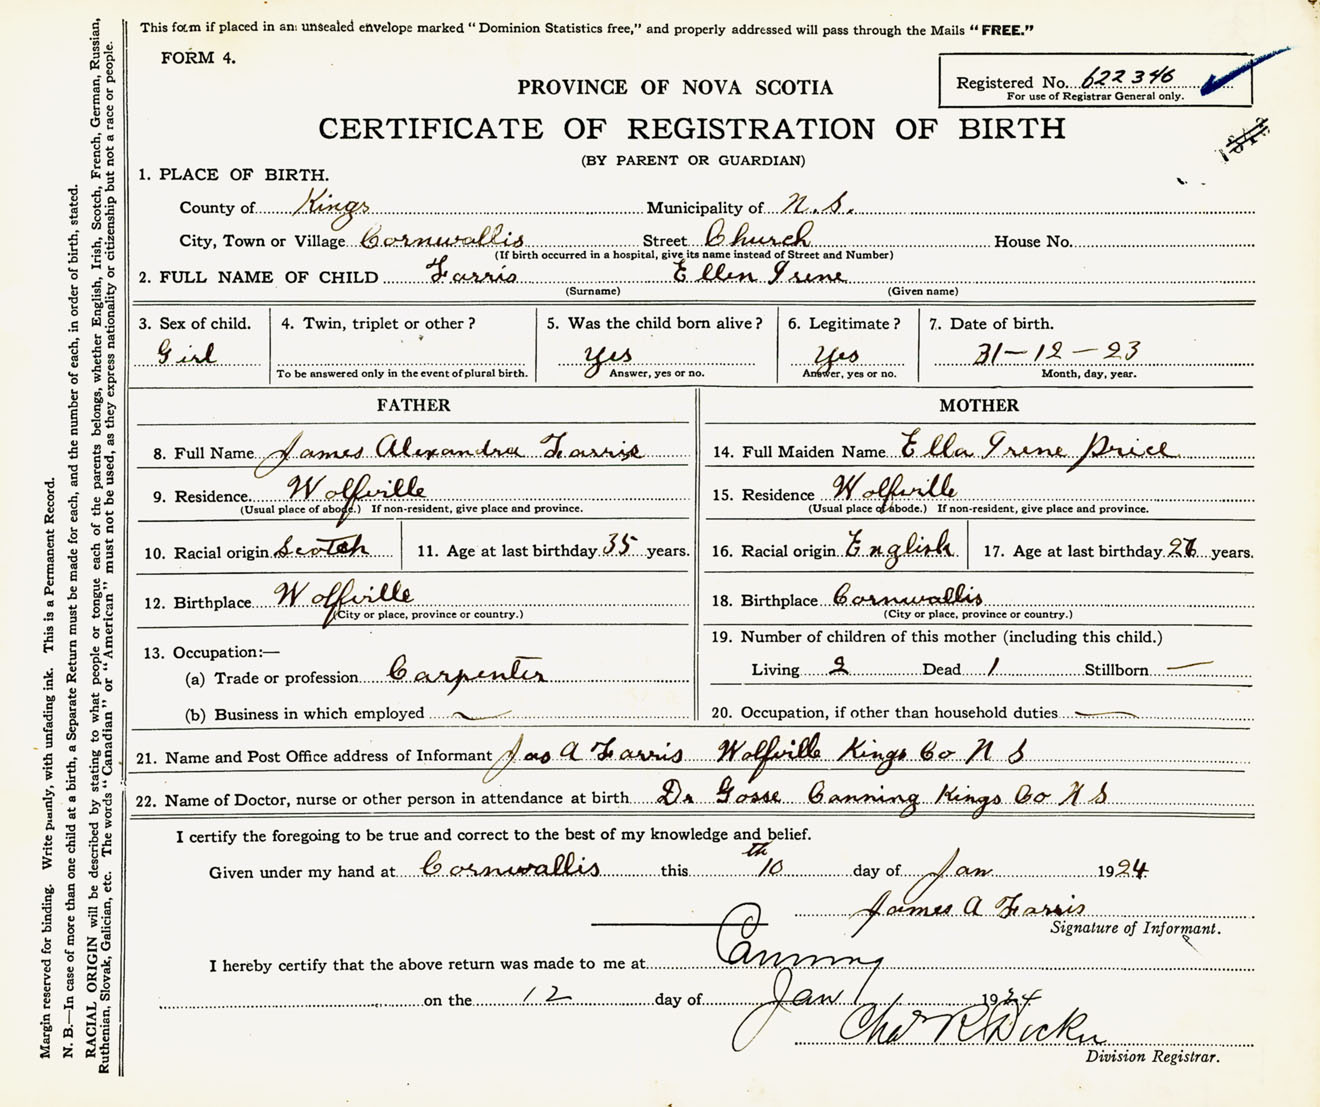 This form if placed in an unsealed envelope marked "Dominion Statistics free," and properly addressed will pass through the Mails "FREE."
FORM 4.
Registered No. 622346
For use of Registrar General only.
PROVINCE OF NOVA SCOTIA
CERTIFICATE OF REGISTRATION OF BIRTH
(BY PARENT OR GUARDIAN)
1. PLACE OF BIRTH.
County of Kings Municipality of N.S.
City, Town or Village Cornwallis Street Church House No.
(If birth occurred in a hospital, give its name instead of Street and Number)
2. FULL NAME OF CHILD Farris Ellen Irene
(Surname) (Given name)
3. Sex of child. 4. Twin, triplet or other? 5. Was the child born alive? 6. Legitimate? 7. Date of birth.
Girl Yes Yes 31-12-23
To be answered only in the event of plural birth. Answer, yes or no. Answer, yes or no. Month, day, year.
FATHER MOTHER
8. Full Name James Alexandra Farris 14. Full Maiden Name Ella Irene Price
9. Residence Wolfville 15. Residence Wolfville
(Usual place of abode.) If non-resident, give place and province. (Usual place of abode.) If non-resident, give place and province.
10. Racial origin Scotch 11. Age at last birthday 35 years. 16. Racial origin English 17. Age at last birthday years.
12. Birthplace Wolfville 18. Birthplace Cornwallis
(City or place, province or country.) (City or place, province or country.)
19. Number of children of this mother (including this child.)
13. Occupation:—
(a) Trade or profession Carpenter Living 2 Dead 1 Stillborn —
(b) Business in which employed — 20. Occupation, if other than household duties —
21. Name and Post Office address of Informant Jas A Farris Wolfville Kings Co N S
22. Name of Doctor, nurse or other person in attendance at birth Dr Gosse Canning Kings Co N S
I certify the foregoing to be true and correct to the best of my knowledge and belief.
Given under my hand at Cornwallis this 10th day of Jan 1924
James A Farris
Signature of Informant.
I hereby certify that the above return was made to me at Canning
on the 12 day of Jan 1924
Chas R
Division Registrar.
Margin reserved for binding. Write plainly, with unfading ink. This is a Permanent Record.
N. B.—In case of more than one child at a birth, a Separate Return must be made for each, and the number of each, in order of birth, stated.
RACIAL ORIGIN will be described by stating to what people or tongue each of the parents belongs, whether English, Irish, Scotch, French, German, Russian,
Ruthenian, Slovak, Galician, etc. The words "Canadian" or "American" must not be used, as they express nationality or citizenship but not a race or people.